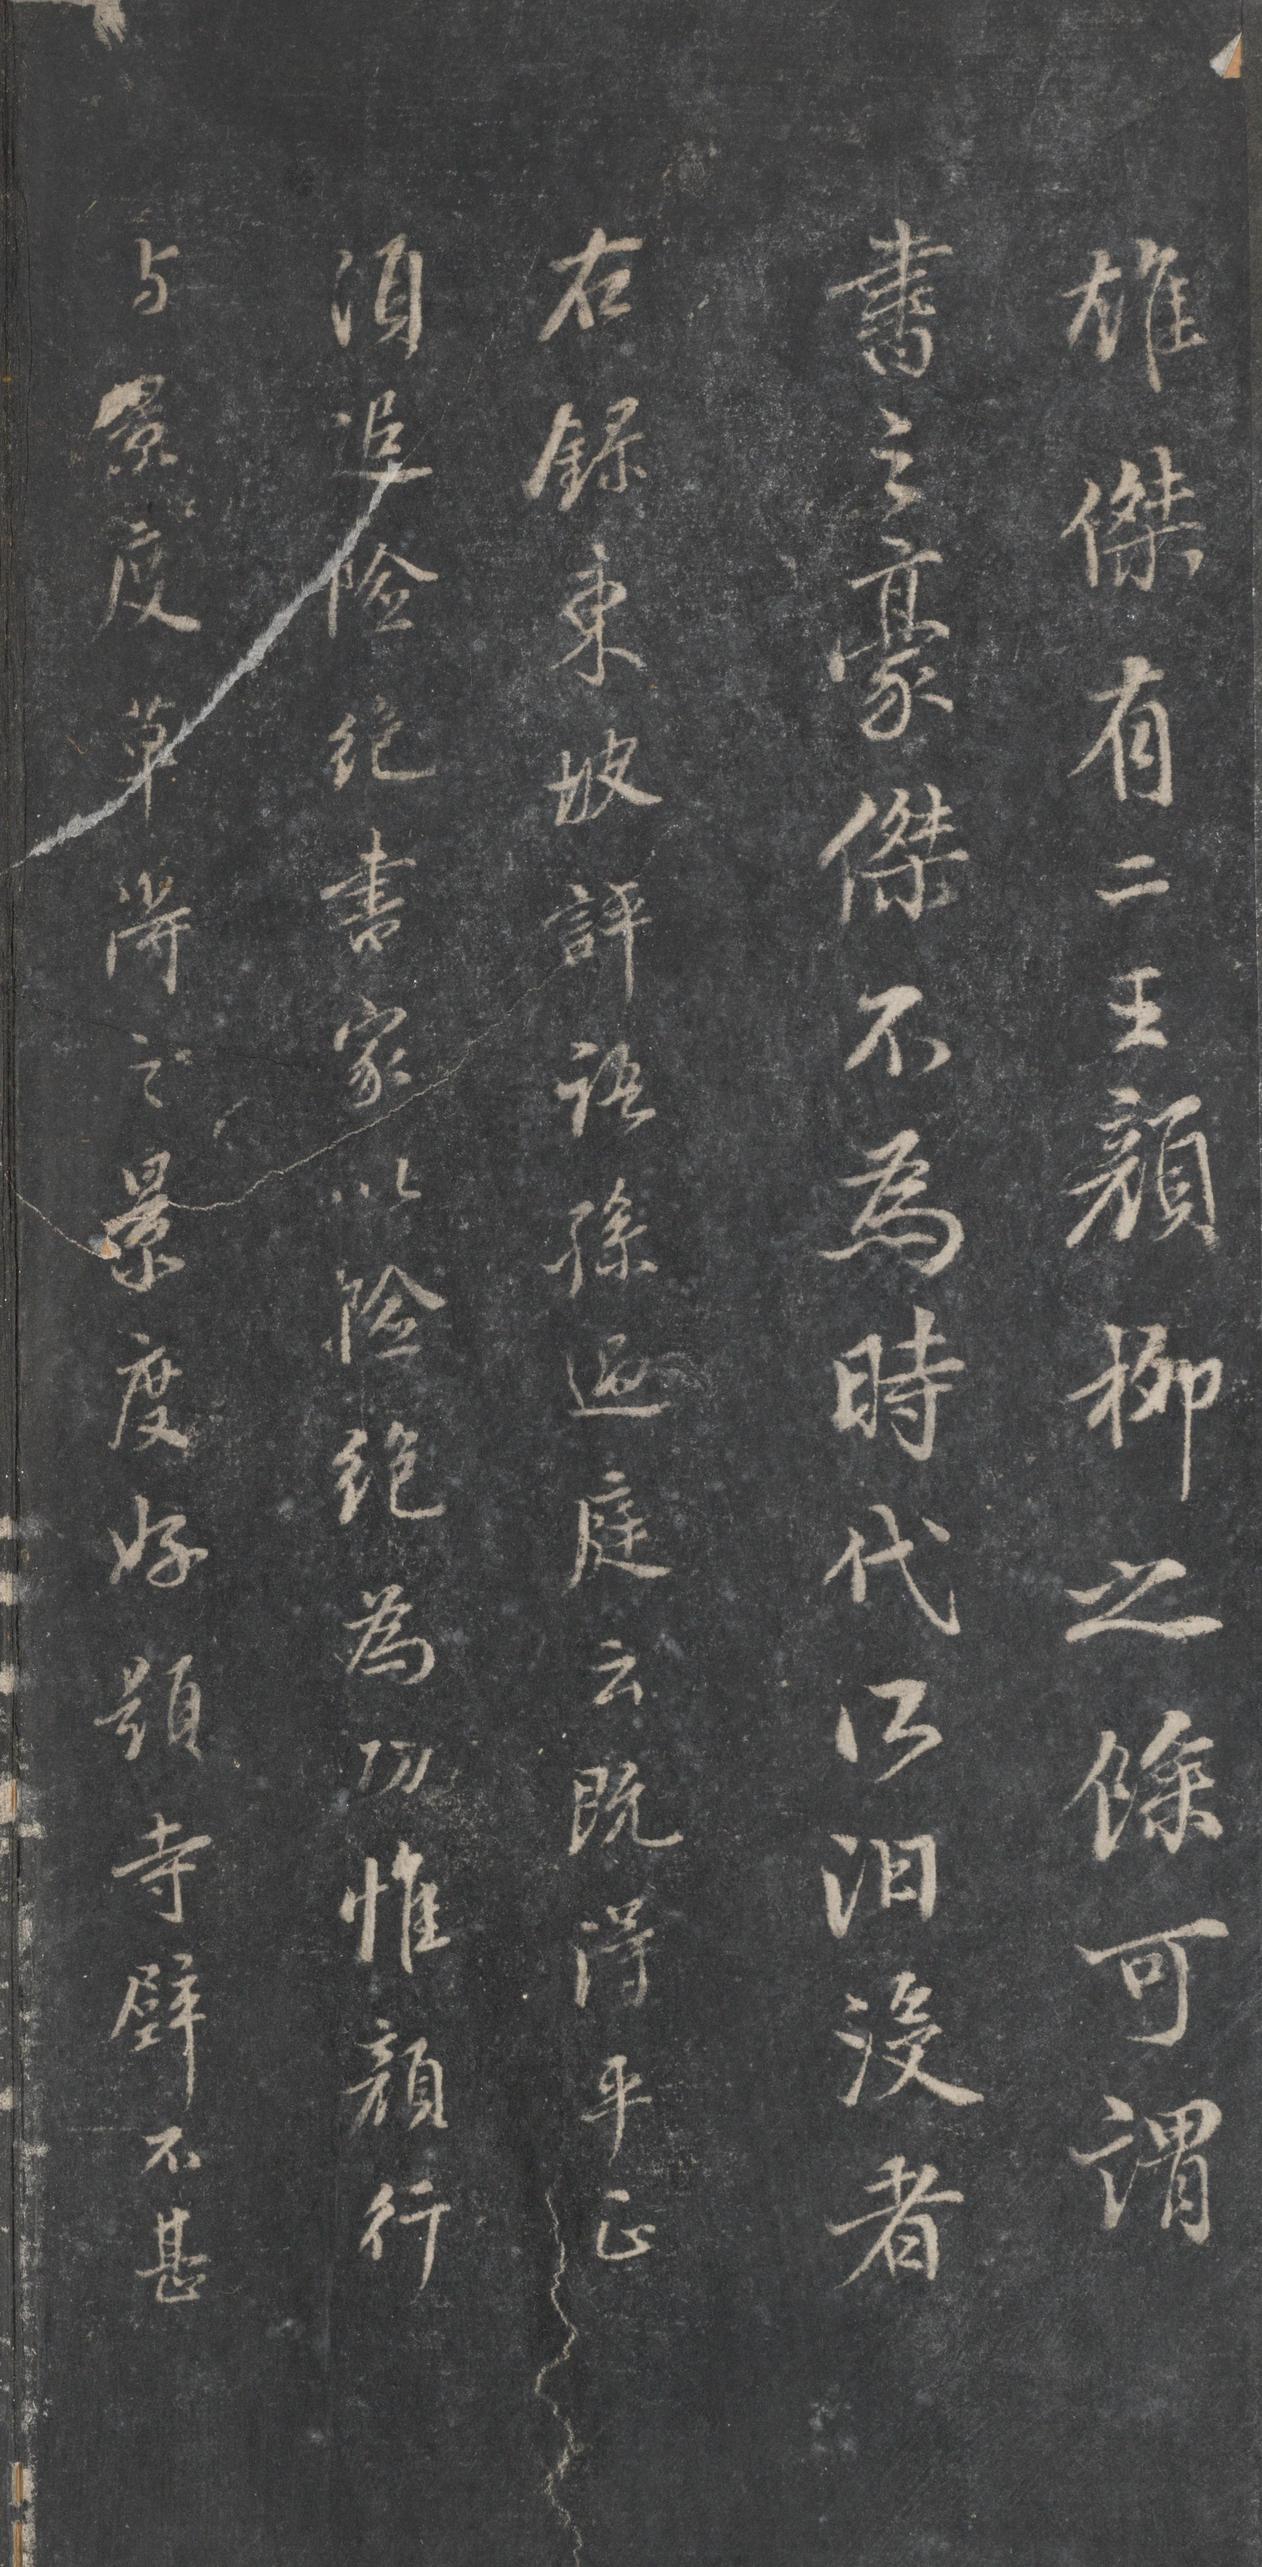 雄傑有二王顏柳之餘可謂
書之豪傑不為時代所汩沒者
右錄東坡評語孫過庭云既得平正
須追險絕書家以險絕為功惟顏行
与景度草得之景度好題寺壁不甚